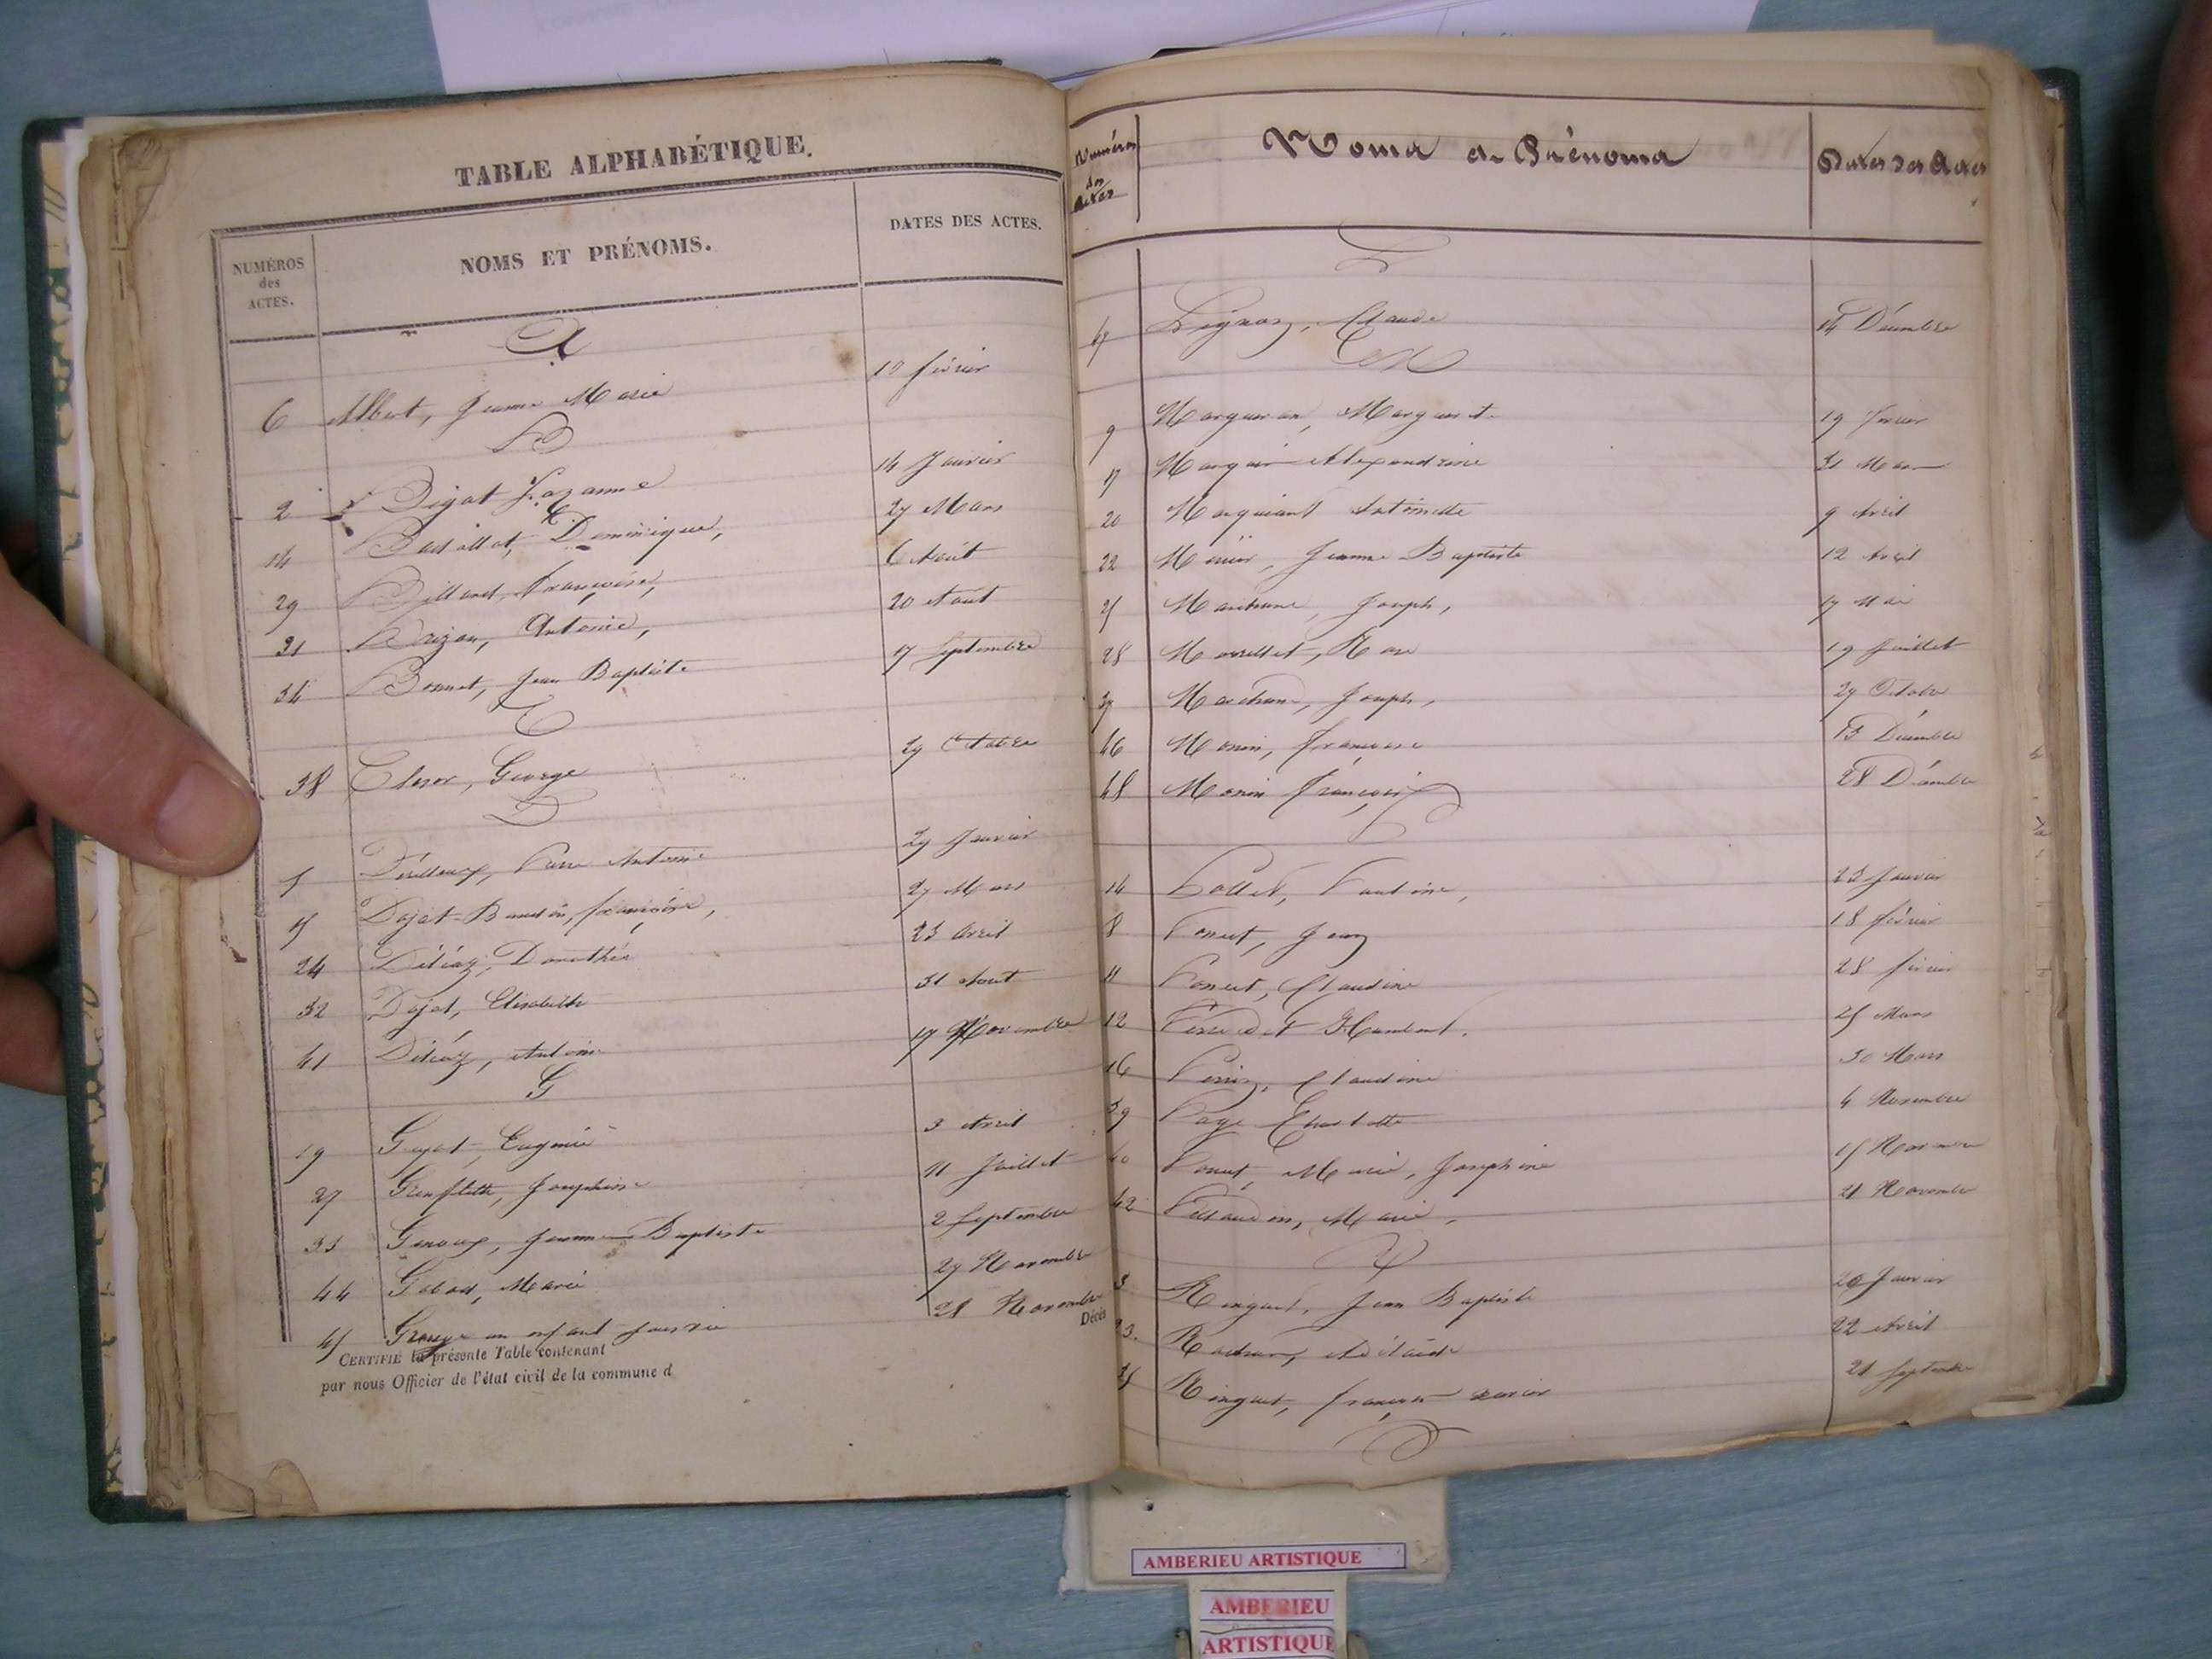 TABLE ALPHABÉTIQUE.
NUMÉROS des ACTES. NOMS ET PRÉNOMS. DATES DES ACTES.
A
6 Albert, Jeanne Marie 12 février
B
2 Bigot Suzanne 14 Janvier
14 Dominique, 27 Mars
29 Billand, Françoise, 6 Août
31 Antoine, 20 Août
34 Bonnet, Jean Baptiste 17 Septembre
C
38 George 29 Octobre
D
5 Pierre Antoine 29 Janvier
15 Dojat-Baudin, françoise, 27 Mars
24 Dorothée 23 Avril
32 Dojat, Elisabeth 31 Août
41 Antoine 17 Novembre
G
19 Guyot, Eugénie 3 Avril
27 Joséphine 11 Juillet
33 Genoux, Jeanne Baptiste 2 Septembre
44 Gobad, Marie 27 Novembre
45 un enfant sans vie 28 Novembre
CERTIFIÉ la présente Table contenant
Décès
par nous Officier de l'état civil de la commune d
Numéros des Actes Noms et Prénoms Dates des Actes
L
47 Claude 14 Décembre
M
9 Marguerite 19 février
17 Alexandrine 31 Mars
20 Antoinette 9 Avril
22 Jeanne Baptiste 12 Avril
25 Joseph, 17 Mai
28 Rose 19 Juillet
37 Joseph, 29 Octobre
46 Monin, françoise 13 Décembre
48 Monin François 28 Décembre
P
4 Pollet, Pauline, 23 Janvier
8 Poncet, Jean 18 février
11 Poncet, Claudine 28 février
12 Humbert. 25 Mars
16 Perrin, Claudine 30 Mars
39 Page Charlotte 4 Novembre
40 Poncet, Marie, Joséphine 15 Novembre
42 Marie, 21 Novembre
R
3 Ringuet, Jean Baptiste 20 Janvier
23. Adélaïde 22 Avril
35 Ringuet, françois xavier 21 Septembre
S
AMBERIEU ARTISTIQUE
AMBERIEU
ARTISTIQUE